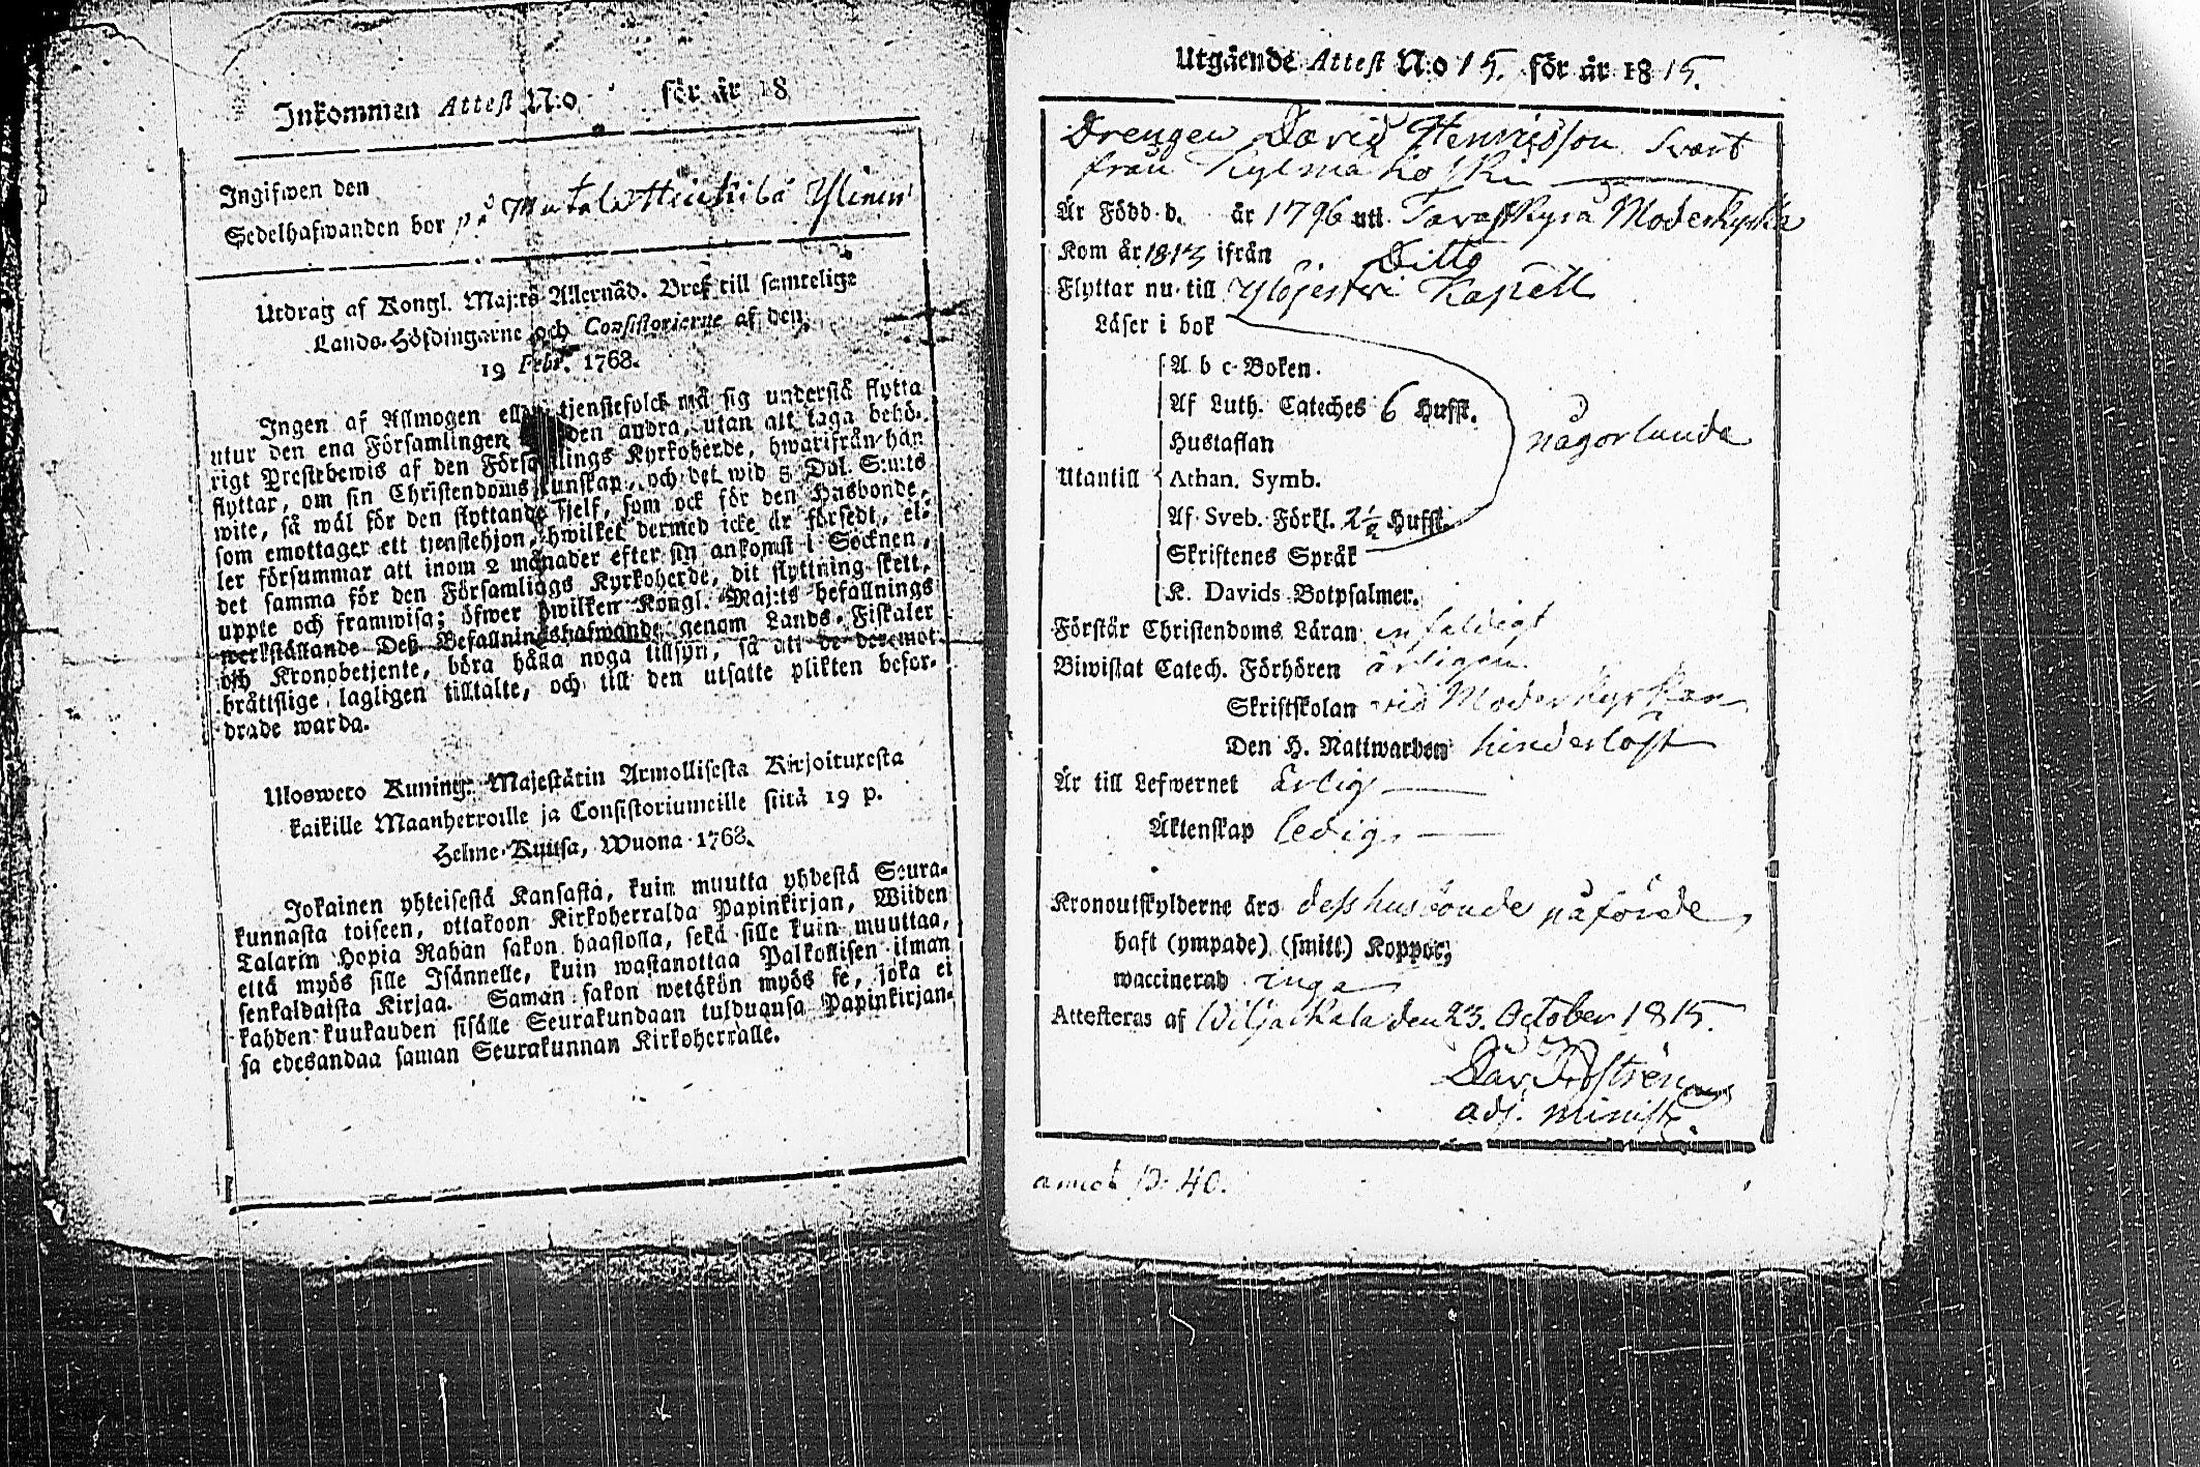 Inkommen Attest N:o för år 18
Ingifwen den
Sedelhafwanden bor på Mutala Heikkilä Ylinen
Utdrag af Kongl. Maj:ts Allernåd. Bref till samtelige
Lands-Höfdingarne och Consistorierne af den
19 Febr. 1768.
Ingen af Allmogen eller tjenstefolck må sig understå flytta
utur den ena Församlingen den andra, utan att taga behö-
rigt Prestebewis af den Församlings Kyrkoherde, hwarifrån han
flyttar, om sin Christendoms kunskap, och det wid 5 Dal. S:mts
wite, så wäl för den flyttande sjelf, som ock för den Husbonde,
som emottager ett tjenstehjon, hwilket dermed icke är försedt, el-
ler försummar att inom 2 månader efter sin ankomst i Socknen,
det samma för den Församlings Kyrkoherde, dit flyttning skett,
uppte och framwisa; öfwer hwilken Kongl. Maj:ts befallnings
werkställande Deß Befallningshafwande genom Lands-Fiskaler
och Kronobetjente, böra hålla noga tillsyn, så att de deremot
bråttslige lagligen tilltalte, och till den utsatte plikten befor-
drade warda.
Ulosweto Kuning: Majestätin Armollisesta Kirjoituxesta
kaikille Maanherroille ja Consistoriumeille siitä 19 p.
Helme-Kuusa, Wuona 1768.
Jokainen yhteisestä Kansasta, kuin muutta yhdestä Seura-
kunnasta toiseen, ottakoon Kirkoherralda Papinkirjan, Wiiden
Talarin Hopia Rahan sakon haastolla, sekä sille kuin muuttaa,
että myös sille Isännelle, kuin wastanottaa Palkollisen ilman
senkaldaista Kirjaa. Saman sakon wetäkön myös se, joka ei
kahden kuukauden sisälle Seurakundaan tulduansa Papinkirjan-
sa edesandaa saman Seurakunnan Kirkoherralle.
Utgående Attest N:o 15. för år 1815.
Drengen David Henricsson Svart
från Kylmäkoski
Är Född d. år 1796 uti Tavastkyrö Moderkyrka
Kom år 1813 ifrån Ditto
Flyttar nu till Ylöjerfvi Kapell
Läser i bok
A b c-Boken.
Af Luth. Cateches 6 Hufst.
Hustaflan
någorlunda
Utantill Athan. Symb.
Af Sveb. Förkl. 2½ Hufst.
Skriftenes Språk
K. Davids Botpsalmer.
Förstår Christendoms Läran enfaldigt
Biwistat Catech. Förhören årligen
Skriftskolan vid Moderkyrkan
Den H. Nattwarden hinderlöst
Är till Lefwernet ärlig
Äktenskap ledig
Kronoutskylderne äro dess husbonde påförde,
haft (ympade) (smitt) Koppor,
waccinerad inga
Attesteras af Wiljakkala den 23. October 1815.
Dav.
adj. minist.
p. 40.